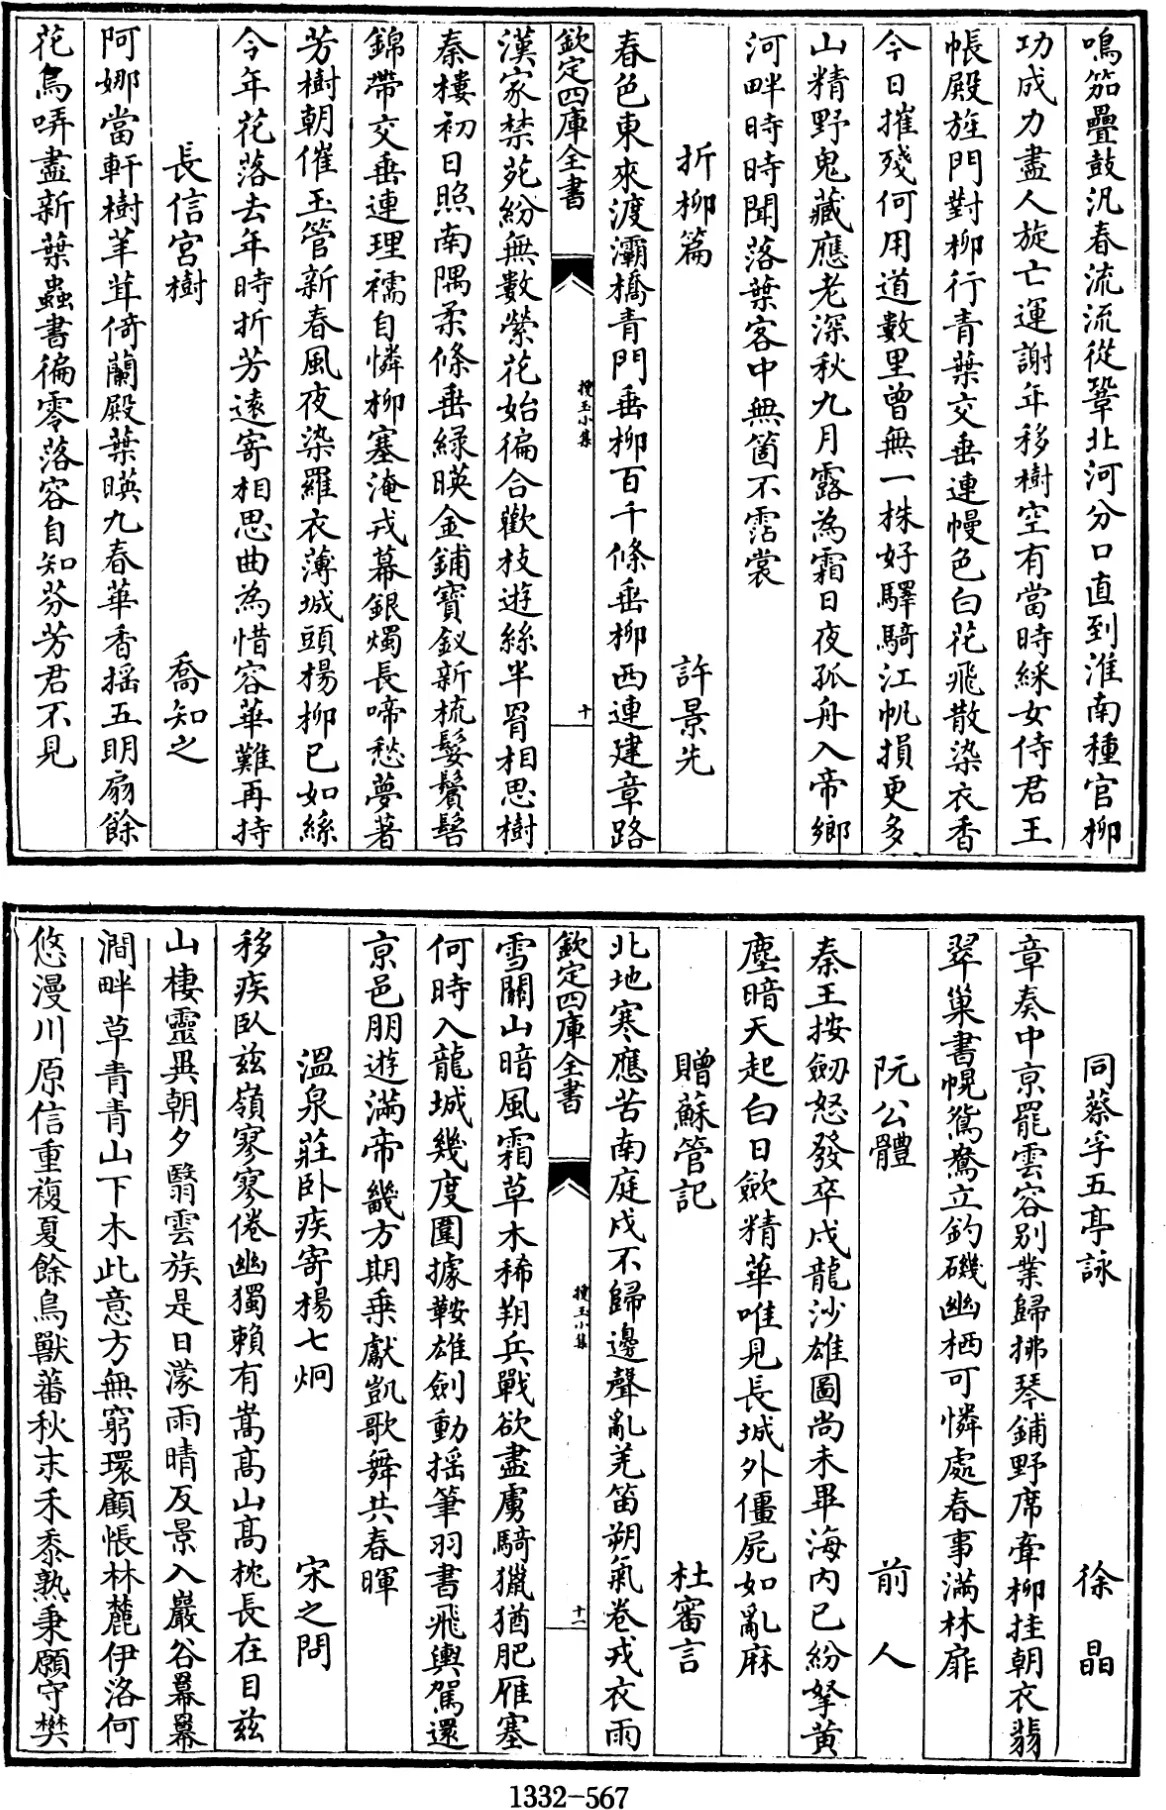 鳴笳疊鼓汎春流流從鞏北河分口直到淮南種官柳
功成力盡人旋亡運謝年移樹空有當時綵女侍君王
帳殿旌門對柳行青葉交垂連幔色白花飛散染衣香
今日摧殘何用道數里曾無一株好驛騎江帆損更多
山精野鬼藏應老深秋九月露為霜日夜孤舟入帝鄉
河畔時時聞落葉客中無箇不霑裳
折柳篇　許景先
春色東來渡灞橋青門垂柳百千條垂柳西連建章路
欽定四庫全書　搜玉小集　十
漢家禁苑紛無數縈花始徧合歡枝遊絲半罥相思樹
秦樓初日照南隅柔條垂緑暎金鋪寳釵新梳鬉鬢髻
錦帶交垂連理襦自憐柳塞淹戎幕銀燭長啼愁夢著
芳樹朝催玉管新春風夜染羅衣薄城頭楊柳已如絲
今年花落去年時折芳逺寄相思曲為惜容華難再持
長信宮樹　喬知之
阿娜當軒樹芊茸倚蘭殿葉暎九春華香揺五明扇餘
花鳥哢盡新葉蟲書徧零落容自知芬芳君不見
同蔡孚五亭詠　徐晶
章奏中京罷雲容別業歸拂琴鋪野席牽柳挂朝衣翡
翠巢書幌鴛鴦立釣磯幽栖可憐處春事滿林扉
阮公體　前人
秦王按劒怒發卒戍龍沙雄圖尚未畢海内已紛拏黄
塵暗天起白日歛精華唯見長城外僵屍如亂麻
贈蘇管記　杜審言
北地寒應苦南庭戍不歸邊聲亂羌笛朔氣卷戎衣雨
欽定四庫全書　搜玉小集　十一
雪關山暗風霜草木稀朔兵戰欲盡虜騎獵猶肥雁塞
何時入龍城幾度圍據鞍雄劍動揺筆羽書飛輿駕還
京邑朋遊滿帝畿方期乗獻凱歌舞共春暉
溫泉莊卧疾寄楊七炯　宋之問
移疾臥兹嶺寥寥倦幽獨賴有嵩髙山髙枕長在目兹
山棲靈異朝夕翳雲族是日濛雨晴反景入巖谷羃羃
澗畔草青青山下木此意方無窮環顧悵林麓伊洛何
悠漫川原信重複夏餘鳥獸蕃秋末禾黍熟秉願守樊
1332-567